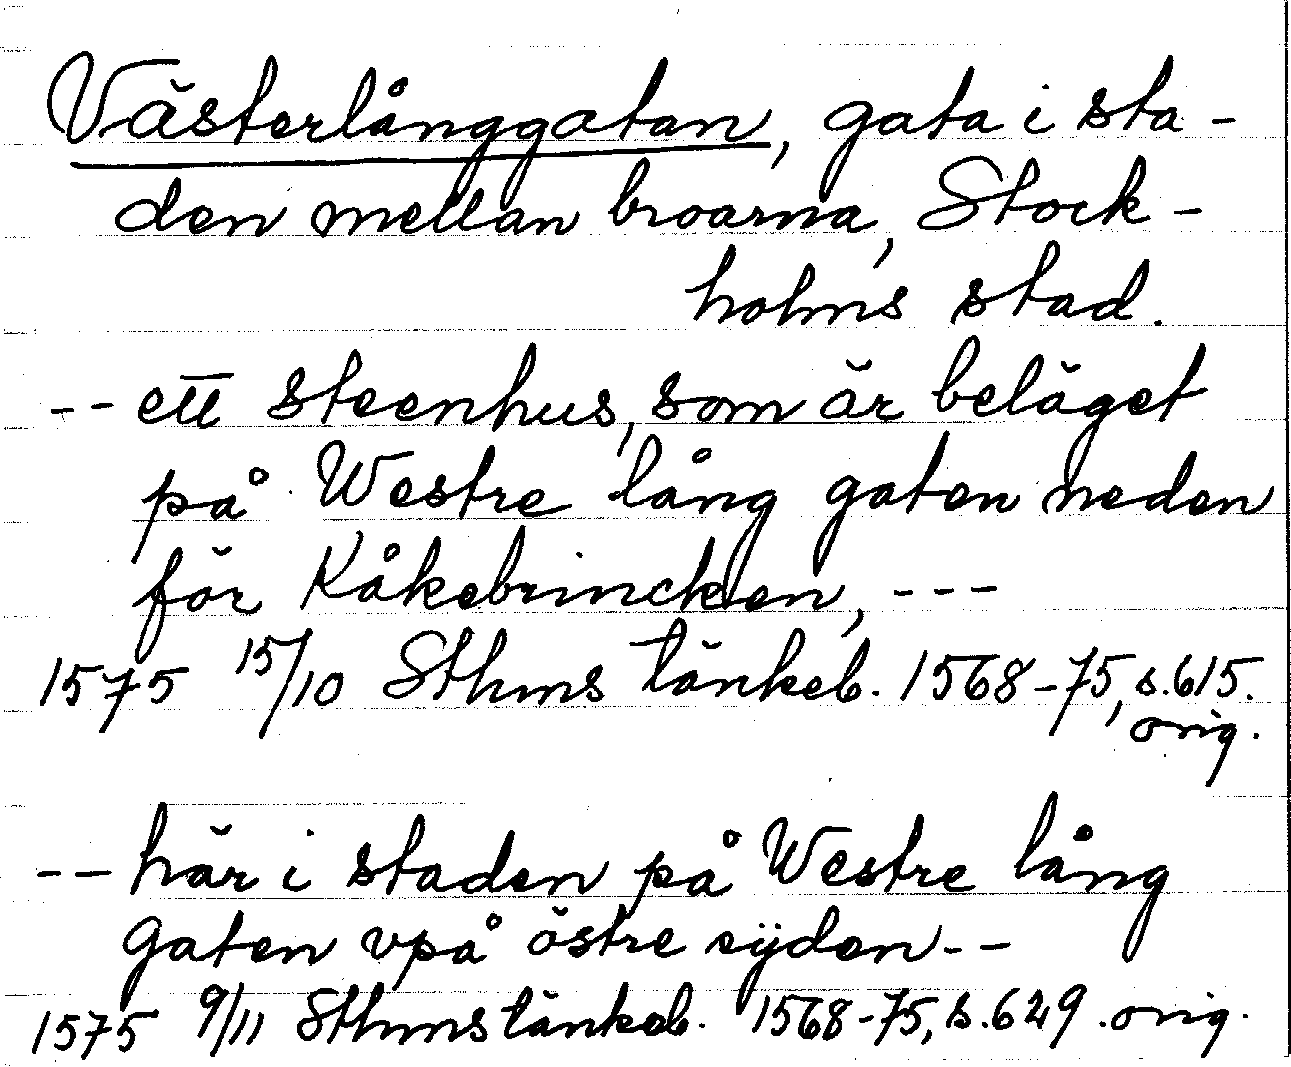 Västerlånggatan, gata i sta-
den mellan broarna, Stock-
holms stad.
-- ett steenhus, som är beläget
på Westre lång gaten neden
för Kåkebrincken, ---
1575 15/10 Sthms tänkeb. 1568-75, s.615.
orig.
-- här i staden på Westre lång
gaten vpå östre sÿden --
1575 9/11 Sthms tänkeb. 1568-75, s.629. orig.